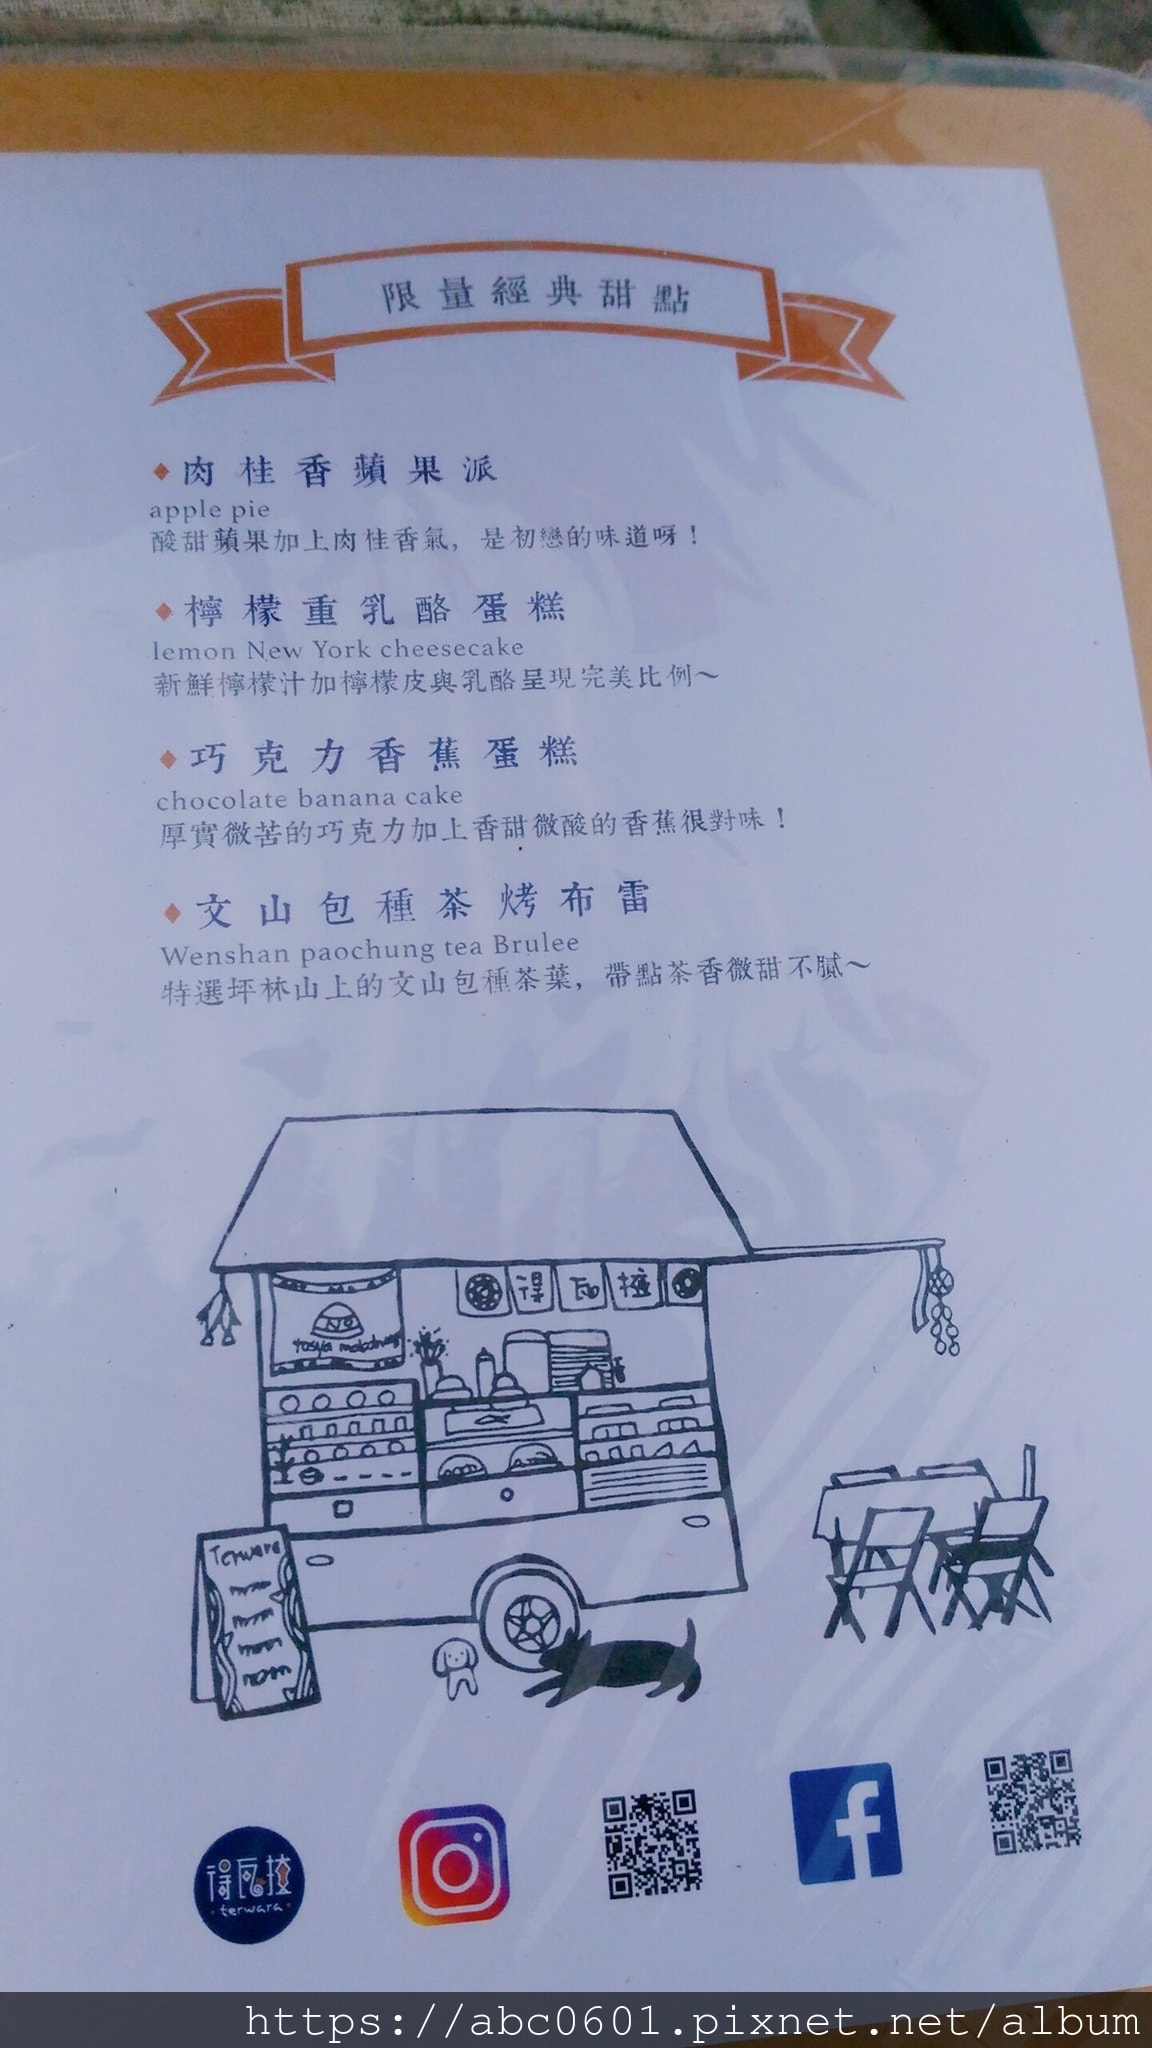 限量經典甜點
肉桂香蘋果派
apple pie
酸甜蘋果加上肉桂香氣，是初戀的味道呀！
檸檬重乳酪蛋糕
lemon New York cheesecake
新鮮檸檬汁加檸檬皮與乳酪呈現完美比例～
巧克力香蕉蛋糕
chocolate banana cake
厚實微苦的巧克力加上香甜微酸的香蕉很對味！
文山包種茶烤布雷
Wenshan paochung tea Brulee
特選坪林山上的文山包種茶葉，帶點茶香微甜不膩～
得瓦揸
Terwara
terwara
https://abc0601.pixnet.net/album